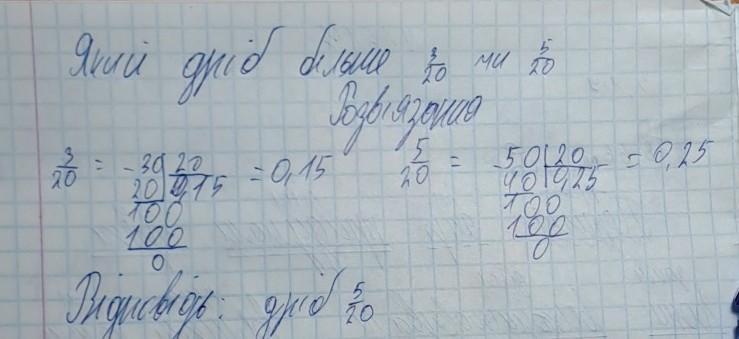 Який дріб більше 3/20 чи 5/20
Розв'язання
3/20 = -30|20 = 0,15 5/20 = -50|20 = 0,25
20 0,15 40 0,25
100 100
100 100
0 0
Відповідь: дріб 5/20